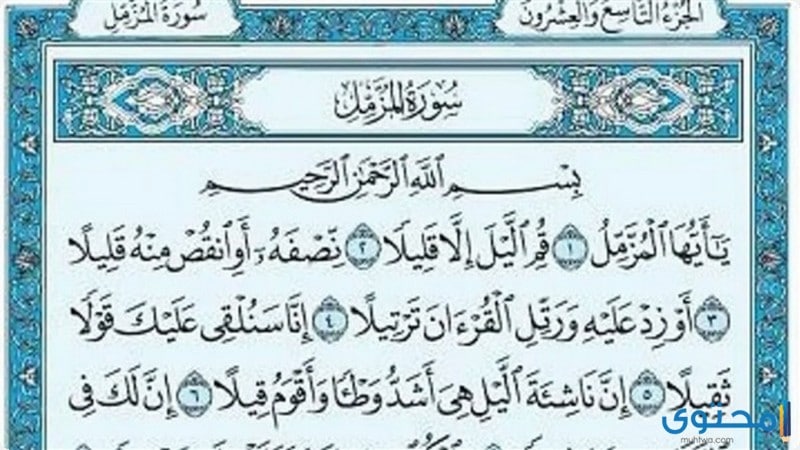 الجزء التاسع والعشرون
سورة المزمل
سُورَةُ المُزَّمِّلِ
بِسْمِ ٱللَّهِ ٱلرَّحْمَٰنِ ٱلرَّحِيمِ
يَٰٓأَيُّهَا ٱلْمُزَّمِّلُ ۝١ قُمِ ٱلَّيْلَ إِلَّا قَلِيلًا ۝٢ نِّصْفَهُۥٓ أَوِ ٱنقُصْ مِنْهُ قَلِيلًا
۝٣ أَوْ زِدْ عَلَيْهِ وَرَتِّلِ ٱلْقُرْءَانَ تَرْتِيلًا ۝٤ إِنَّا سَنُلْقِى عَلَيْكَ قَوْلًا
ثَقِيلًا ۝٥ إِنَّ نَاشِئَةَ ٱلَّيْلِ هِىَ أَشَدُّ وَطْـًٔا وَأَقْوَمُ قِيلًا ۝٦ إِنَّ لَكَ فِى
محتوى
muhtwa.com